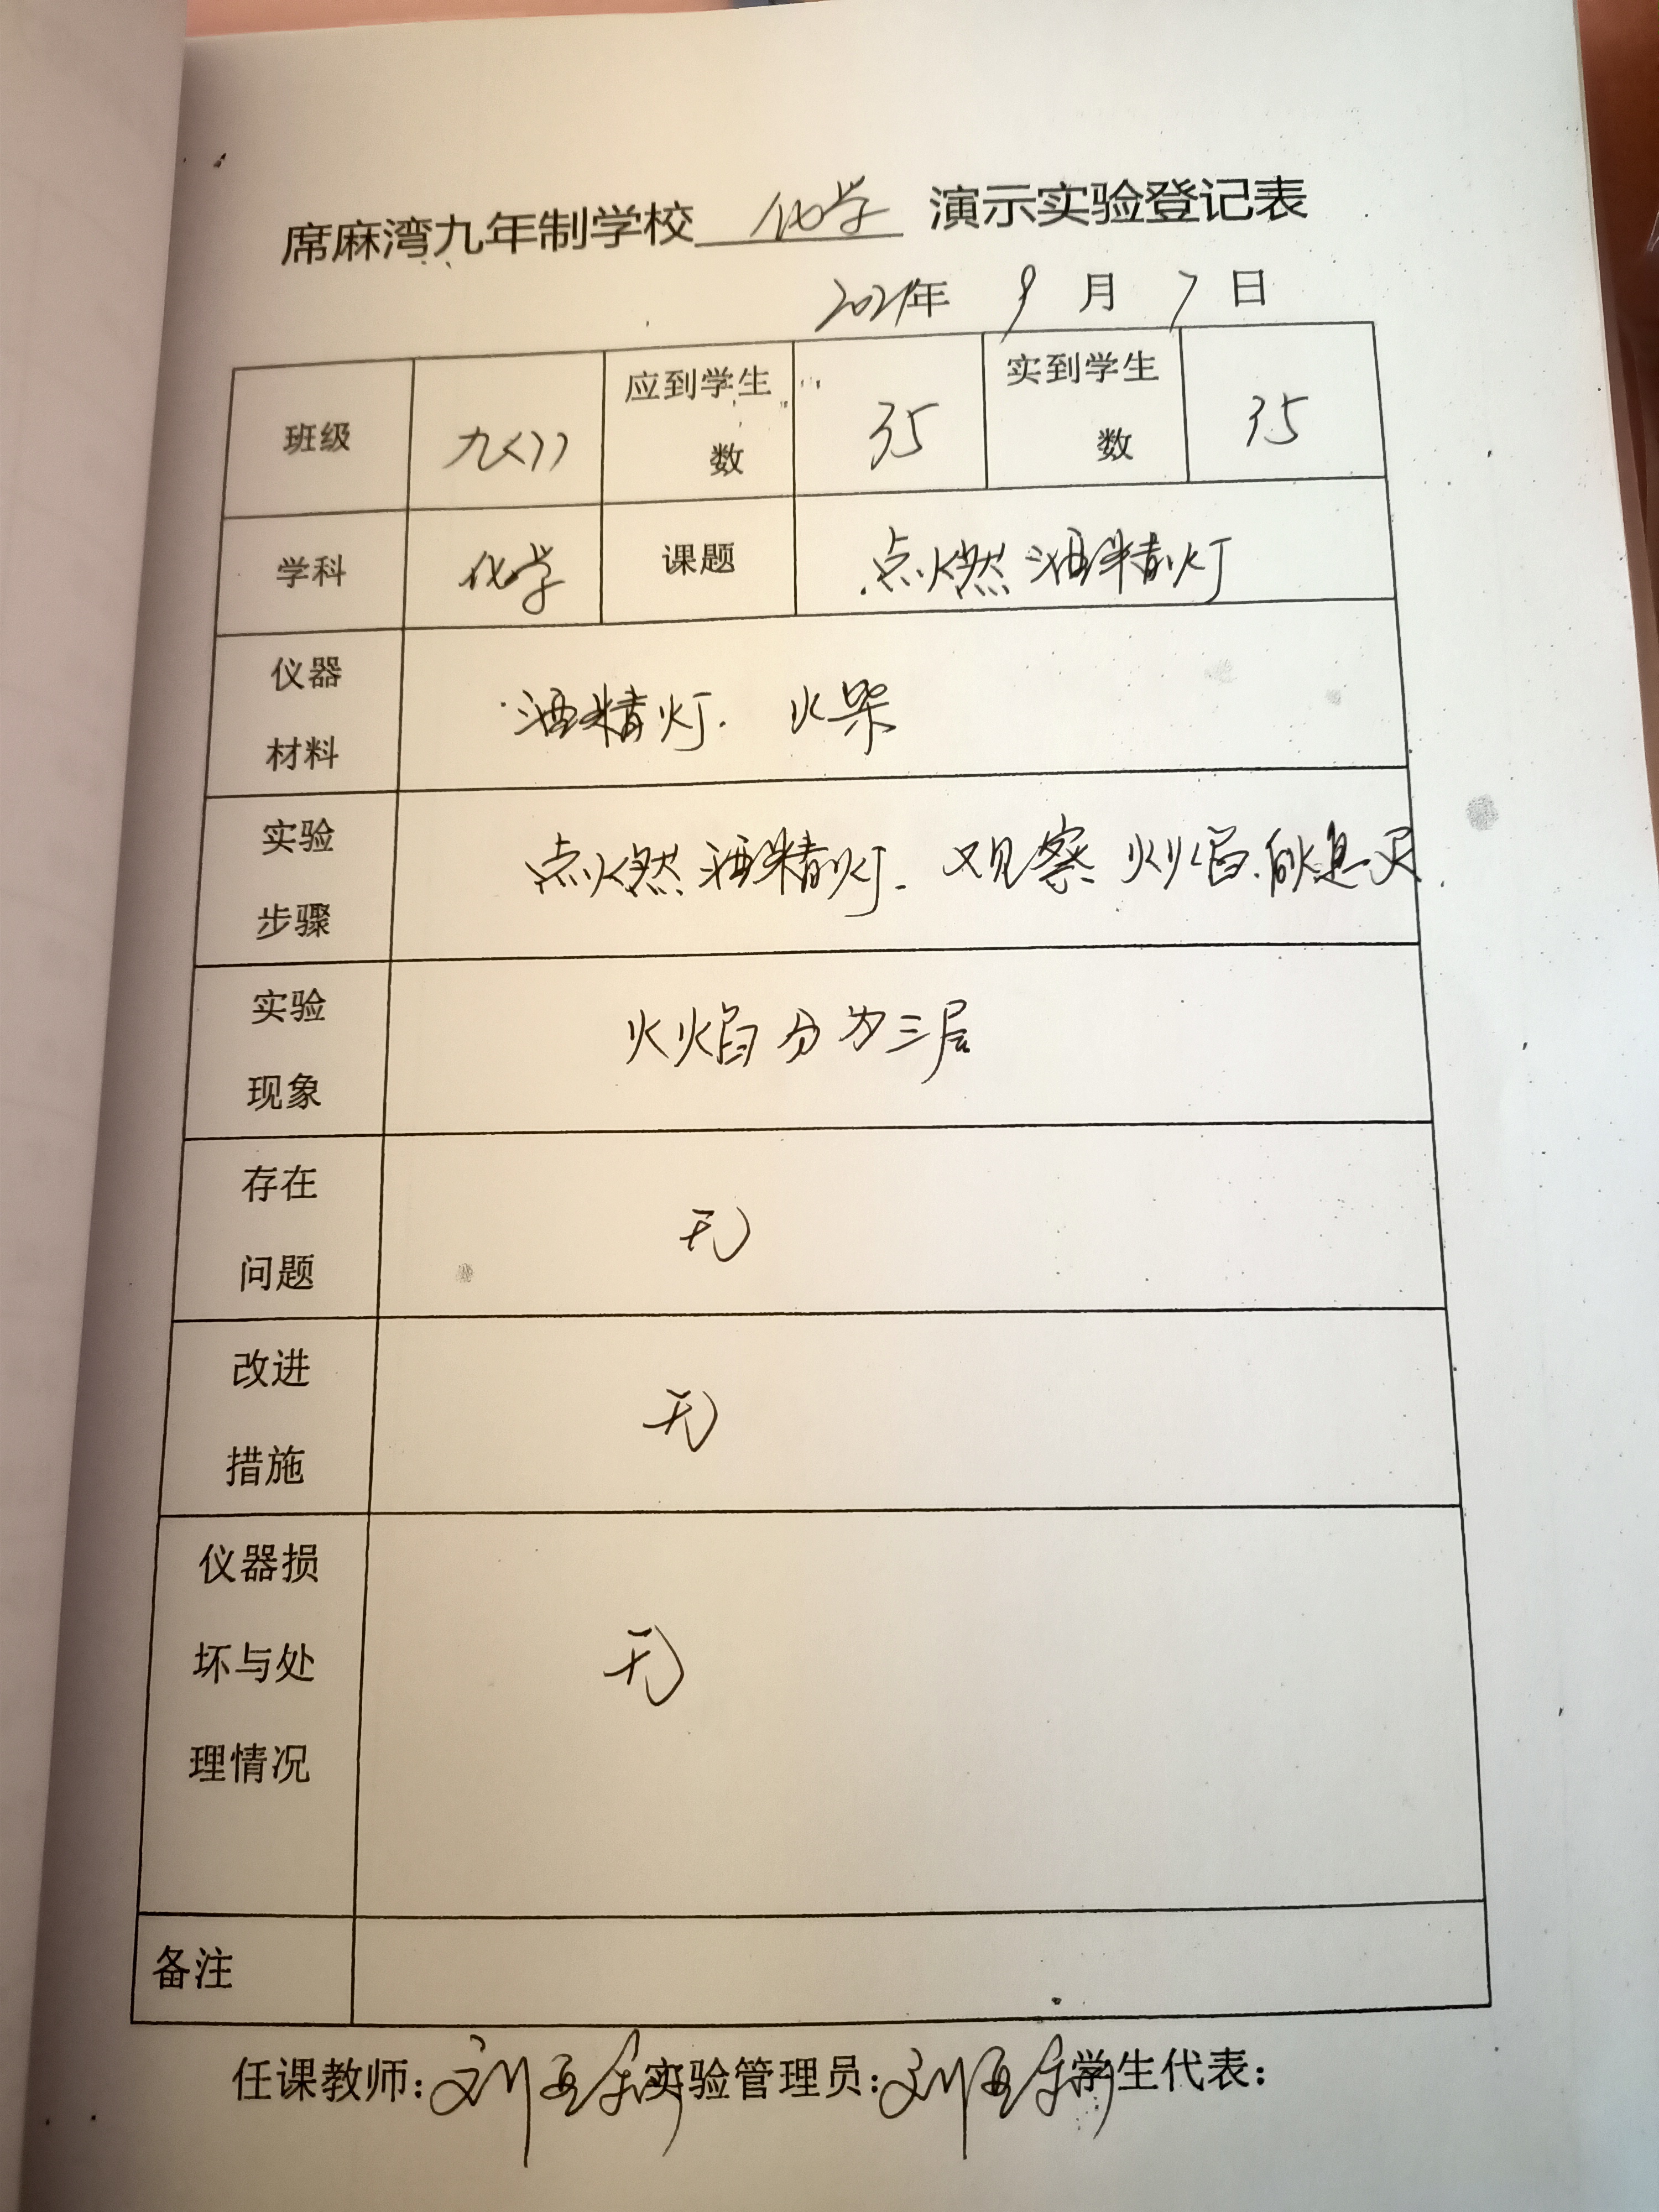 席麻湾九年制学校 化学 演示实验登记表
2021年 9 月 7 日
班级 九(1) 应到学生数 35 实到学生数 35
学科 化学 课题 点燃酒精灯
仪器材料 酒精灯. 火柴
实验步骤 点燃酒精灯. 观察火焰.熄灭.
实验现象 火焰分为三层
存在问题 无
改进措施 无
仪器损坏与处理情况 无
备注
任课教师: 刘 实验管理员: 刘 学生代表: